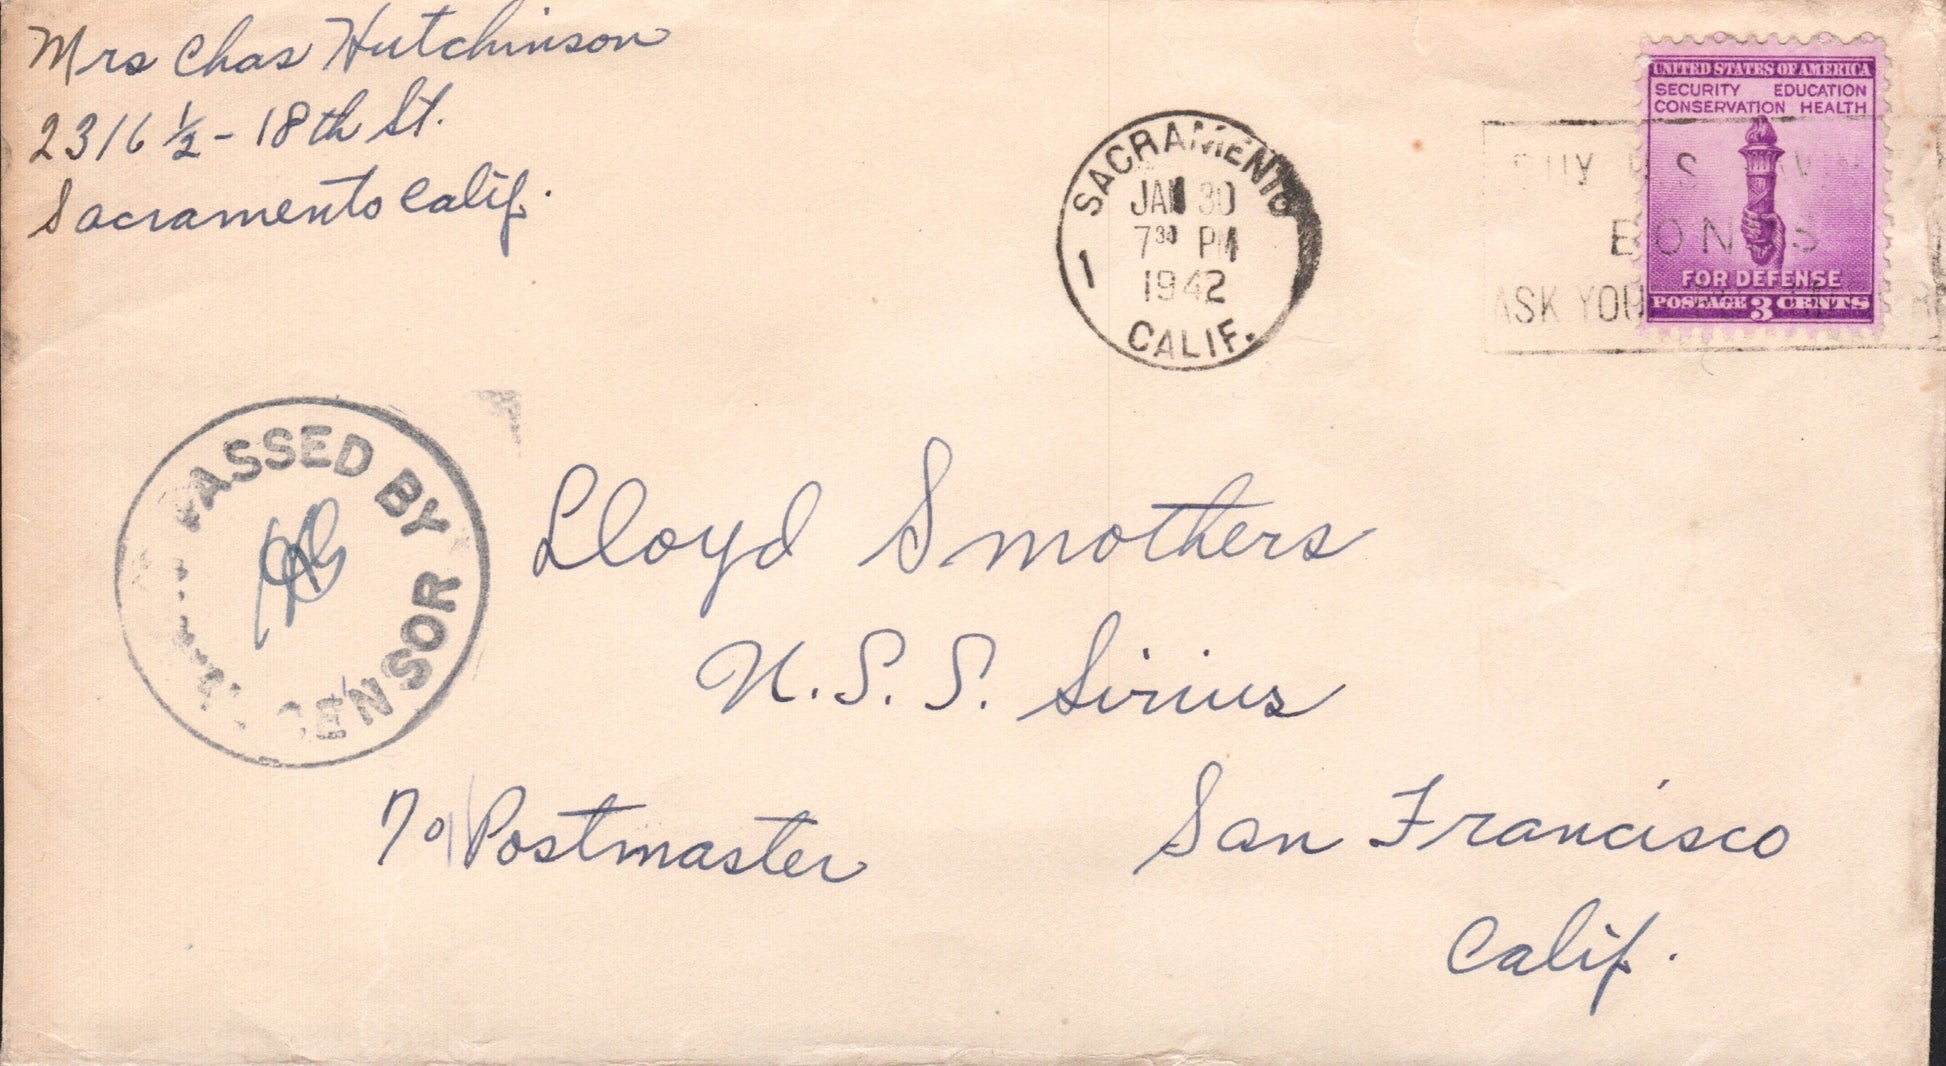 Mrs Chas Hutchinson
2316 ½ - 18th St.
Sacramento Calif.
SACRAMENTO
JAN 30
7 30 PM
1942
1
CALIF.
UNITED STATES OF AMERICA
SECURITY EDUCATION
CONSERVATION HEALTH
FOR DEFENSE
POSTAGE 3 CENTS
BUY U.S. SAVINGS
BONDS
ASK YOUR
PASSED BY
CENSOR
Lloyd Smothers
U.S.S. Sirius
% Postmaster
San Francisco
Calif.